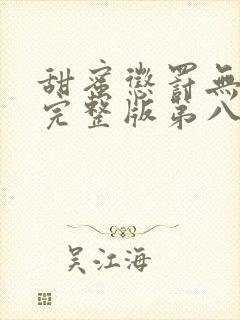 甜蜜懲罰無
完整版第八
吴江海